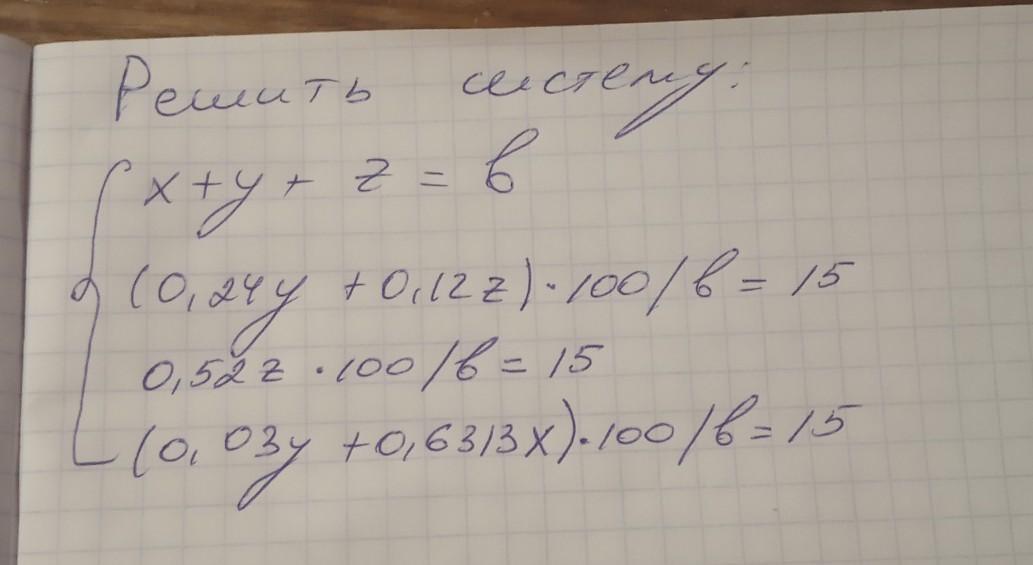 Решить систему:
x+y+ z = в
(0,24y +0,12z)·100/в= 15
0,52z ·100/в= 15
(0,03y +0,6313x)·100/в=15